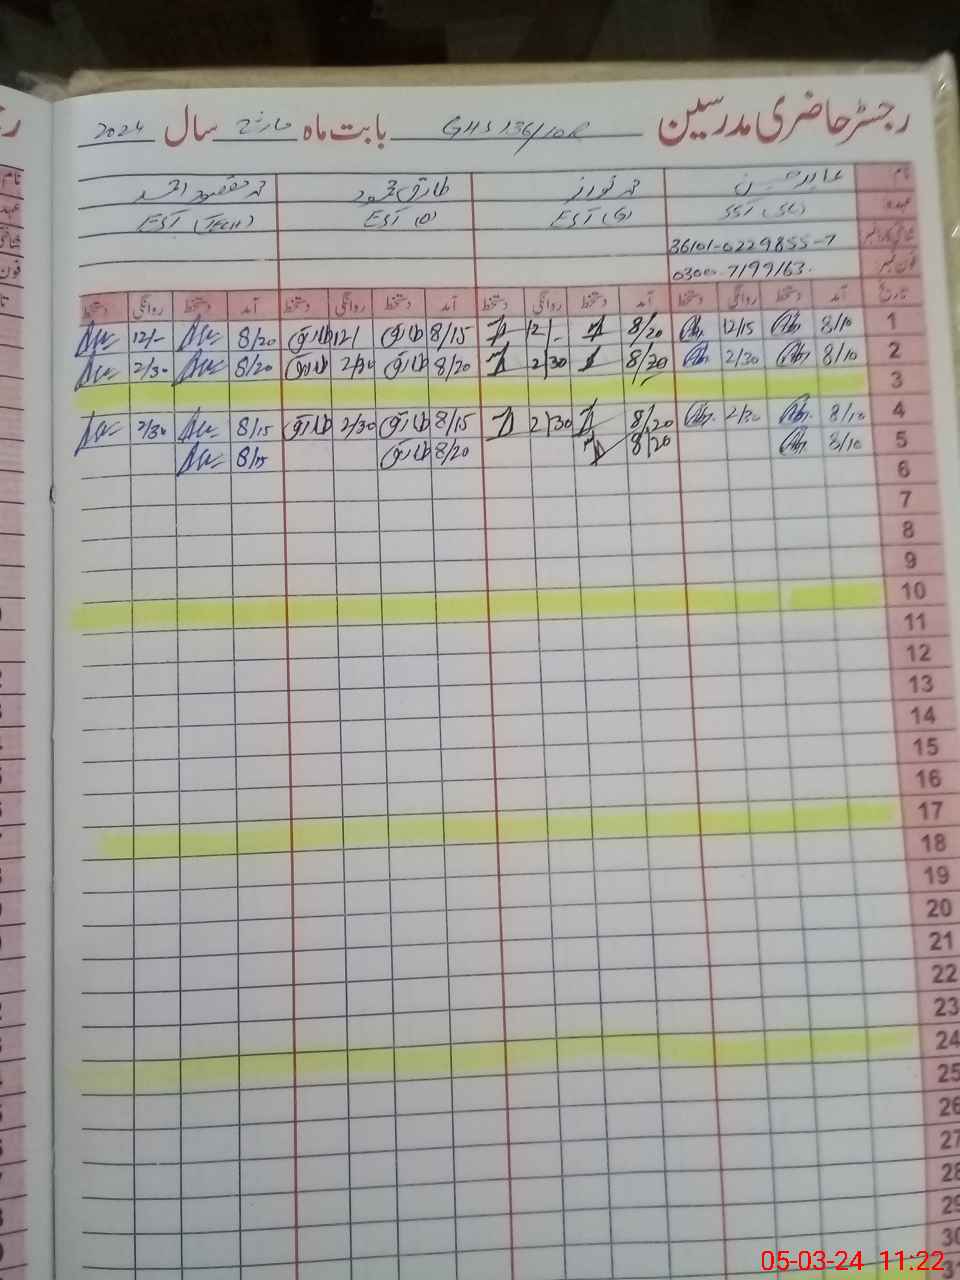 رجسٹر حاضری مدرسین GHS 136/10R بابت ماہ مارچ سال 2024
نام عابد حسین محمد نواز طارق محمود محمد مقصود احمد
عہدہ SST (SC) EST (G) EST (O) EST (TECH)
شناختی کارڈ نمبر 36101-0229855-7
فون نمبر 0300-7199163
تاریخ آمد دستخط روانگی دستخط آمد دستخط روانگی دستخط آمد دستخط روانگی دستخط آمد دستخط روانگی دستخط
1 8/10 12/15 8/20 12/- 8/15 طارق 12/ طارق 8/20 12/-
2 8/10 2/30 8/20 2/30 8/20 طارق 2/30 طارق 8/20 2/30
3
4 8/10 2/30 8/20 2/30 8/15 طارق 2/30 طارق 8/15 2/30
5 8/10 8/20 8/20 طارق 8/15
6
7
8
9
10
11
12
13
14
15
16
17
18
19
20
21
22
23
24
25
26
27
28
29
30
31
05-03-24 11:22